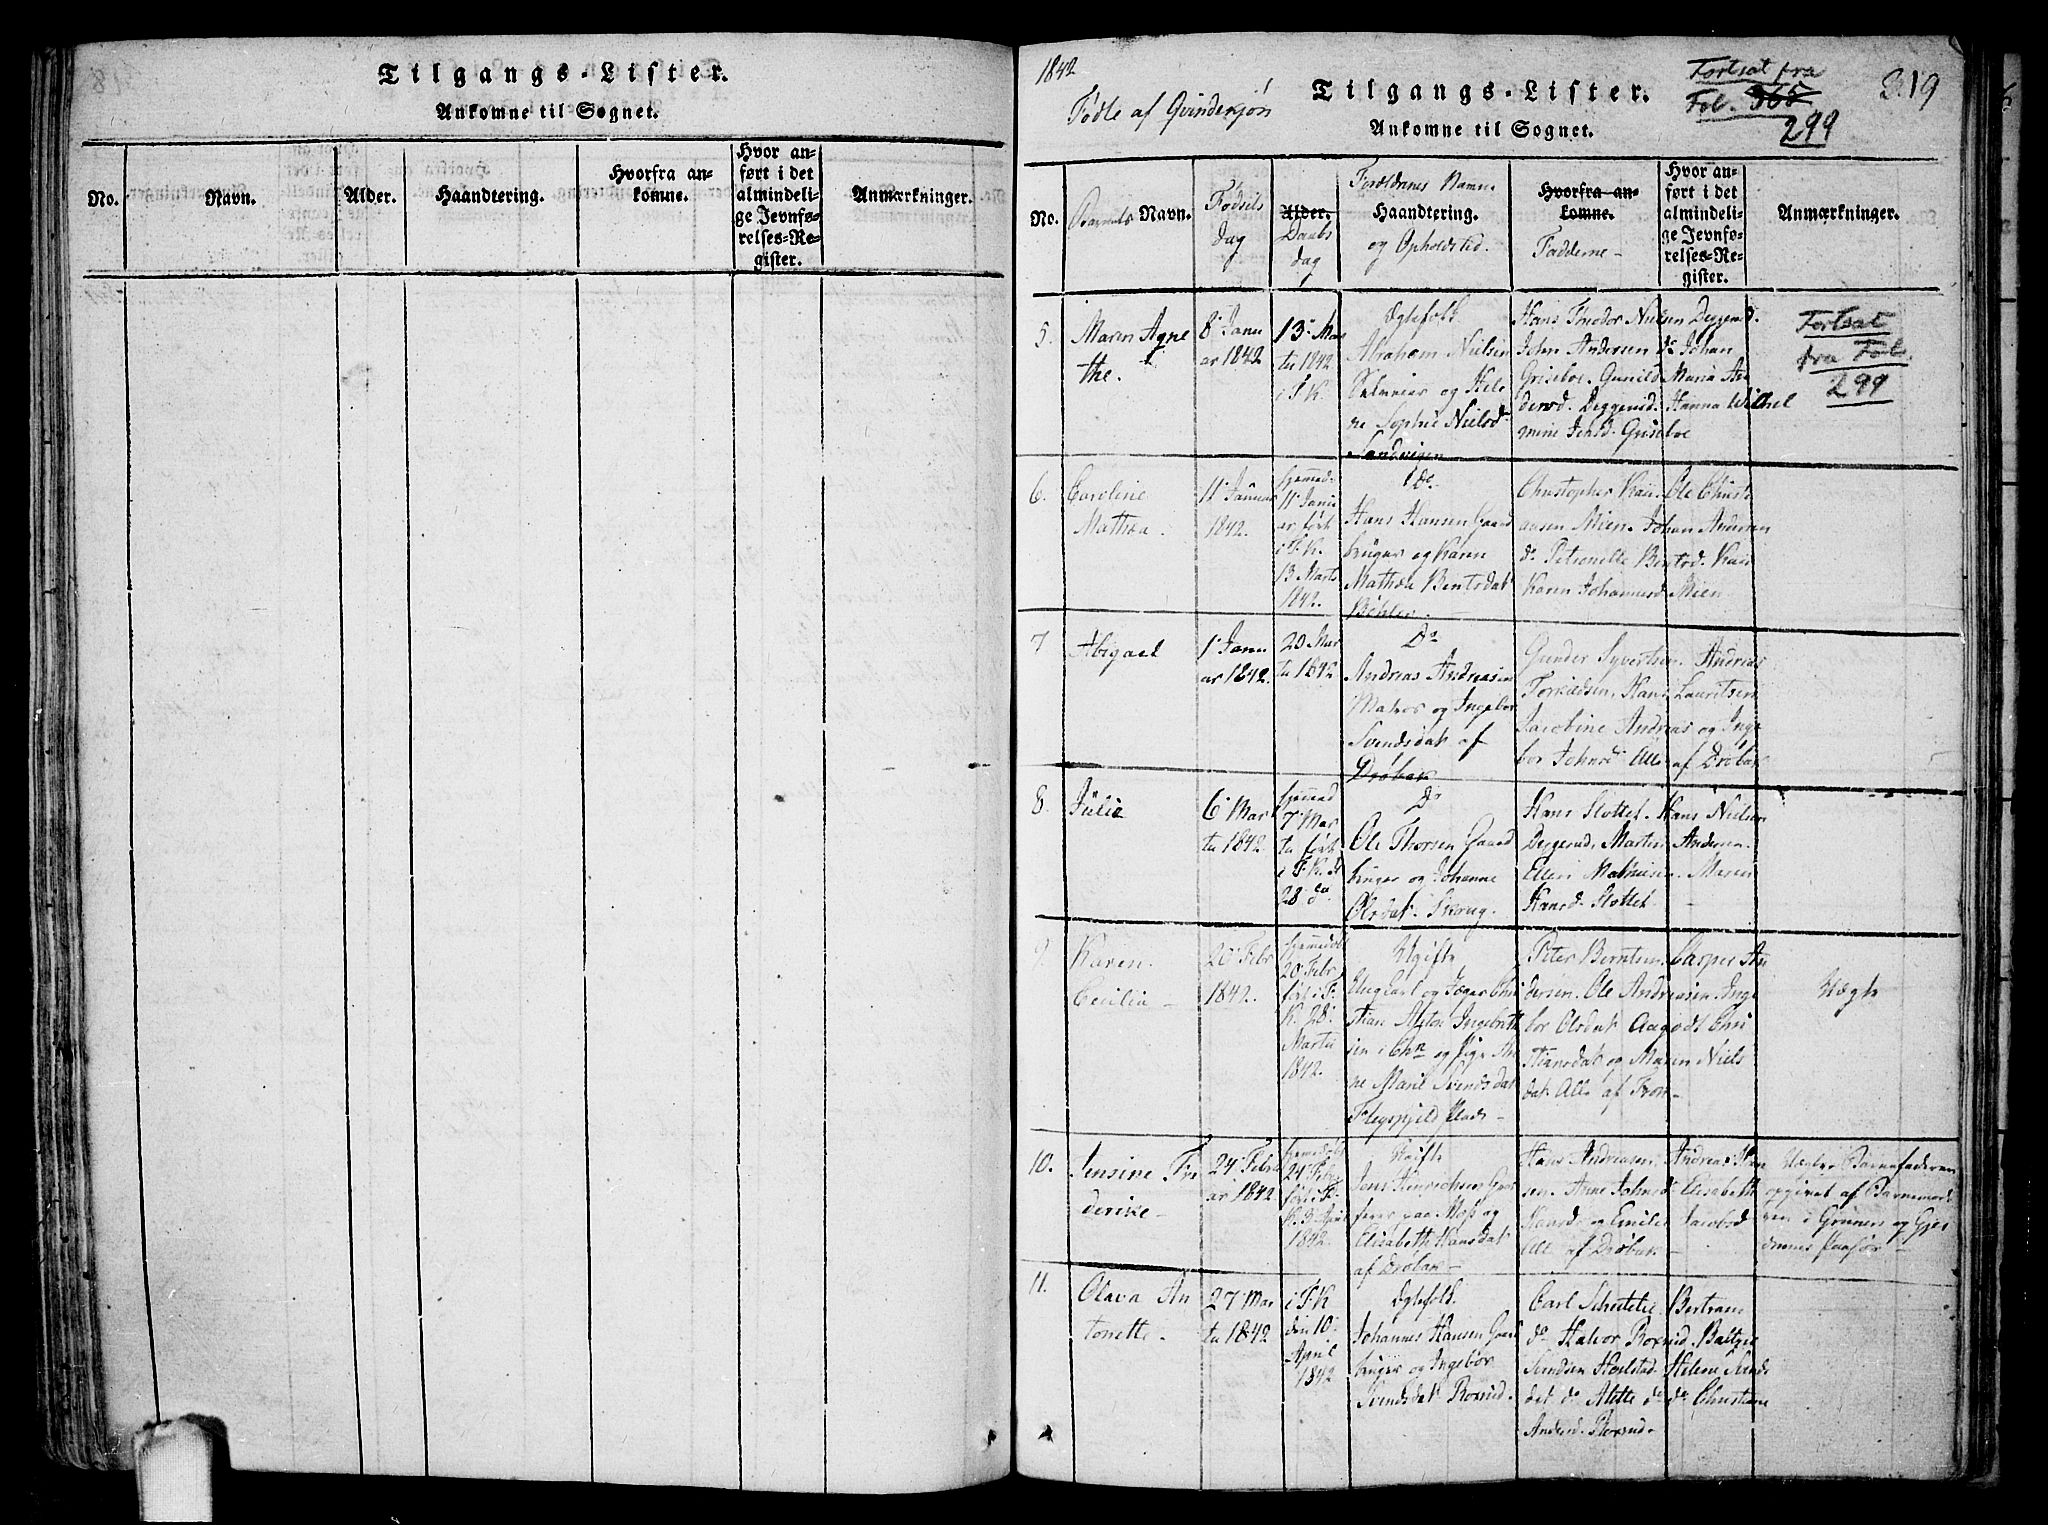 Tilgangs-Lister.
Ankomne til Sognet.
No.
Navn.
Alder.
Haandtering.
Hvorfra an-
komne.
Hvor an-
ført i det
almindeli-
ge Jevnfø-
relses-Re-
gister.
Anmærkninger.
1842
Fødte af Qvindekjøn
Tilgangs-Lister.
Ankomne til Sognet.
Fortsat fra
Fol. 365
299
319
No.
Barnets Navn.
Fødsels
dag
Alder.
Daabs
dag
Forældrenes Navne
Haandtering.
og Opholdsted.
Hvorfra an-
komne.
Fadderne -
Hvor an-
ført i det
almindeli-
ge Jevnfø-
relses-Re-
gister.
Anmærkninger.
5.
Maren Agne
the.
8' Janu
ar 1842
13' Mar
ts 1842
i F.K.
Ægtefolk
Abraham Nielsen
og Hele
ne Sophie Nielsd
Sandvigen
Hans Theodor Nielsen Deggerud.
John Andersen do Johan
Griseboe. Gunild Maria An
dersd. Deggerud. Hanna Wilhel
mine Jensd. Griseboe
Fortsat
fra Fol.
299
6.
Caroline
Mathea.
11' Januar
1842.
hjemmed.
11 Janu
ar ført
i F.K.
13 Marts
1842.
Do
Hans Hansen Gaard
bruger og Karen
Mathea Berntsdat
Christopher Kau. Ole Christi
ansen Mien. Johan Andersen
do Petronelle Berntsd. Kau
Karen Johannesd. Mien
7
Abigael
1' Janu
ar 1842.
20 Mar
ts 1842
Do
Andreas Andreasen
Matros og Ingebor
Svendsdat af
Drøbak
Gunder Syvertsen. Andreas
Torkildsen, Hans Lauritsen
Jacobine Andreas og Inge
bor Johnsd. Alle af Drøbak
8.
Julie
6' Mar
ts 1842.
hjemmed
7 Mar
ts ført
i F.K. d
28 do
Do
Ole Thorsen Gaard
bruger og Johanne
Olsdat. Skoug.
Hans Slottet. Hans Nielsen
Deggerud, Martin Andersen.
Ellen Mathisen. Maren
Hansd. Slottet.
9.
Karen
Cecilia -
20' Febr
1842.
hjemmedøbt
20 Febr
ført i F.
K. 28'
Marts
1842.
Ugifte
Ungkarl og Jæger Chri
stian Anton Ingebrigt
sen i Chra og Pige An
ne Marie Svendsdat
Peter Berntsen. Casper An
dersen. Ole Andreasen. Inge
bor Olsdat. Aagodt Chri
stiansdat og Maren Niels
dat. Alle af Fron -
Uægte
10.
Jensine Fre
derike -
24' Febru
ar 1842
hjemmedøbt
24 Febr
ført i F.
K. 3 April
1842.
Ugifte
Jens Henrichsen Gas
ferer paa Moss og
Elisabeth Hansdat
af Drøbak -
Hans Andreasen, Andreas Han
sen. Anne Johnsd. Elisabeth
Hansd. og Emilie Jacobsd
Alle af Drøbak -
Uægte. Barnefaderen
opgivet af Barnemode
ren i Grunner og Gjer
dernes Paahør -
11.
Olava An
tonette.
27' Mar
ts 1842
i F.K
den 10'
April
1842
Ægtefolk.
Johannes Hansen Gaard
bruger og Ingebor
Svendsdat. Roxrud.
Carl Schulelie Bertram
do Halvor Roxrud. Baltzer
Svendsen Horlstad. Helene Svends
dat do Alette do do Christiane
Andersd. Roxrud.